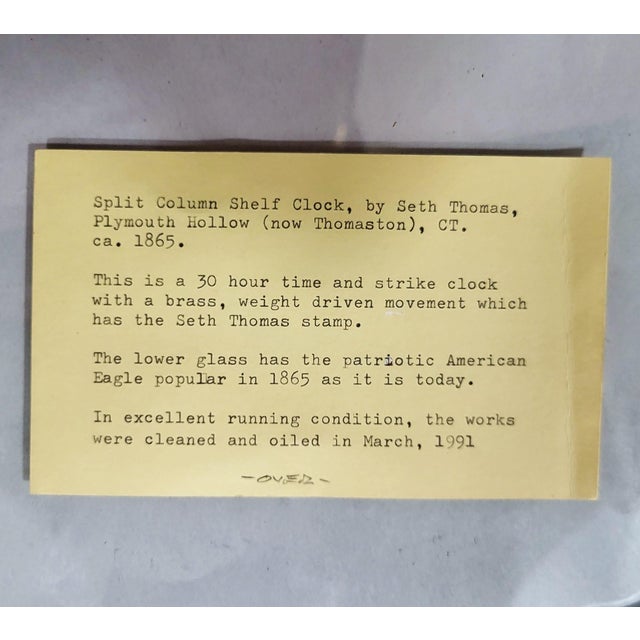 Split Column Shelf Clock, by Seth Thomas,
Plymouth Hollow (now Thomaston), CT.
ca. 1865.
This is a 30 hour time and strike clock
with a brass, weight driven movement which
has the Seth Thomas stamp.
The lower glass has the patriotic American
Eagle popular in 1865 as it is today.
In excellent running condition, the works
were cleaned and oiled in March, 1991
-OVER-